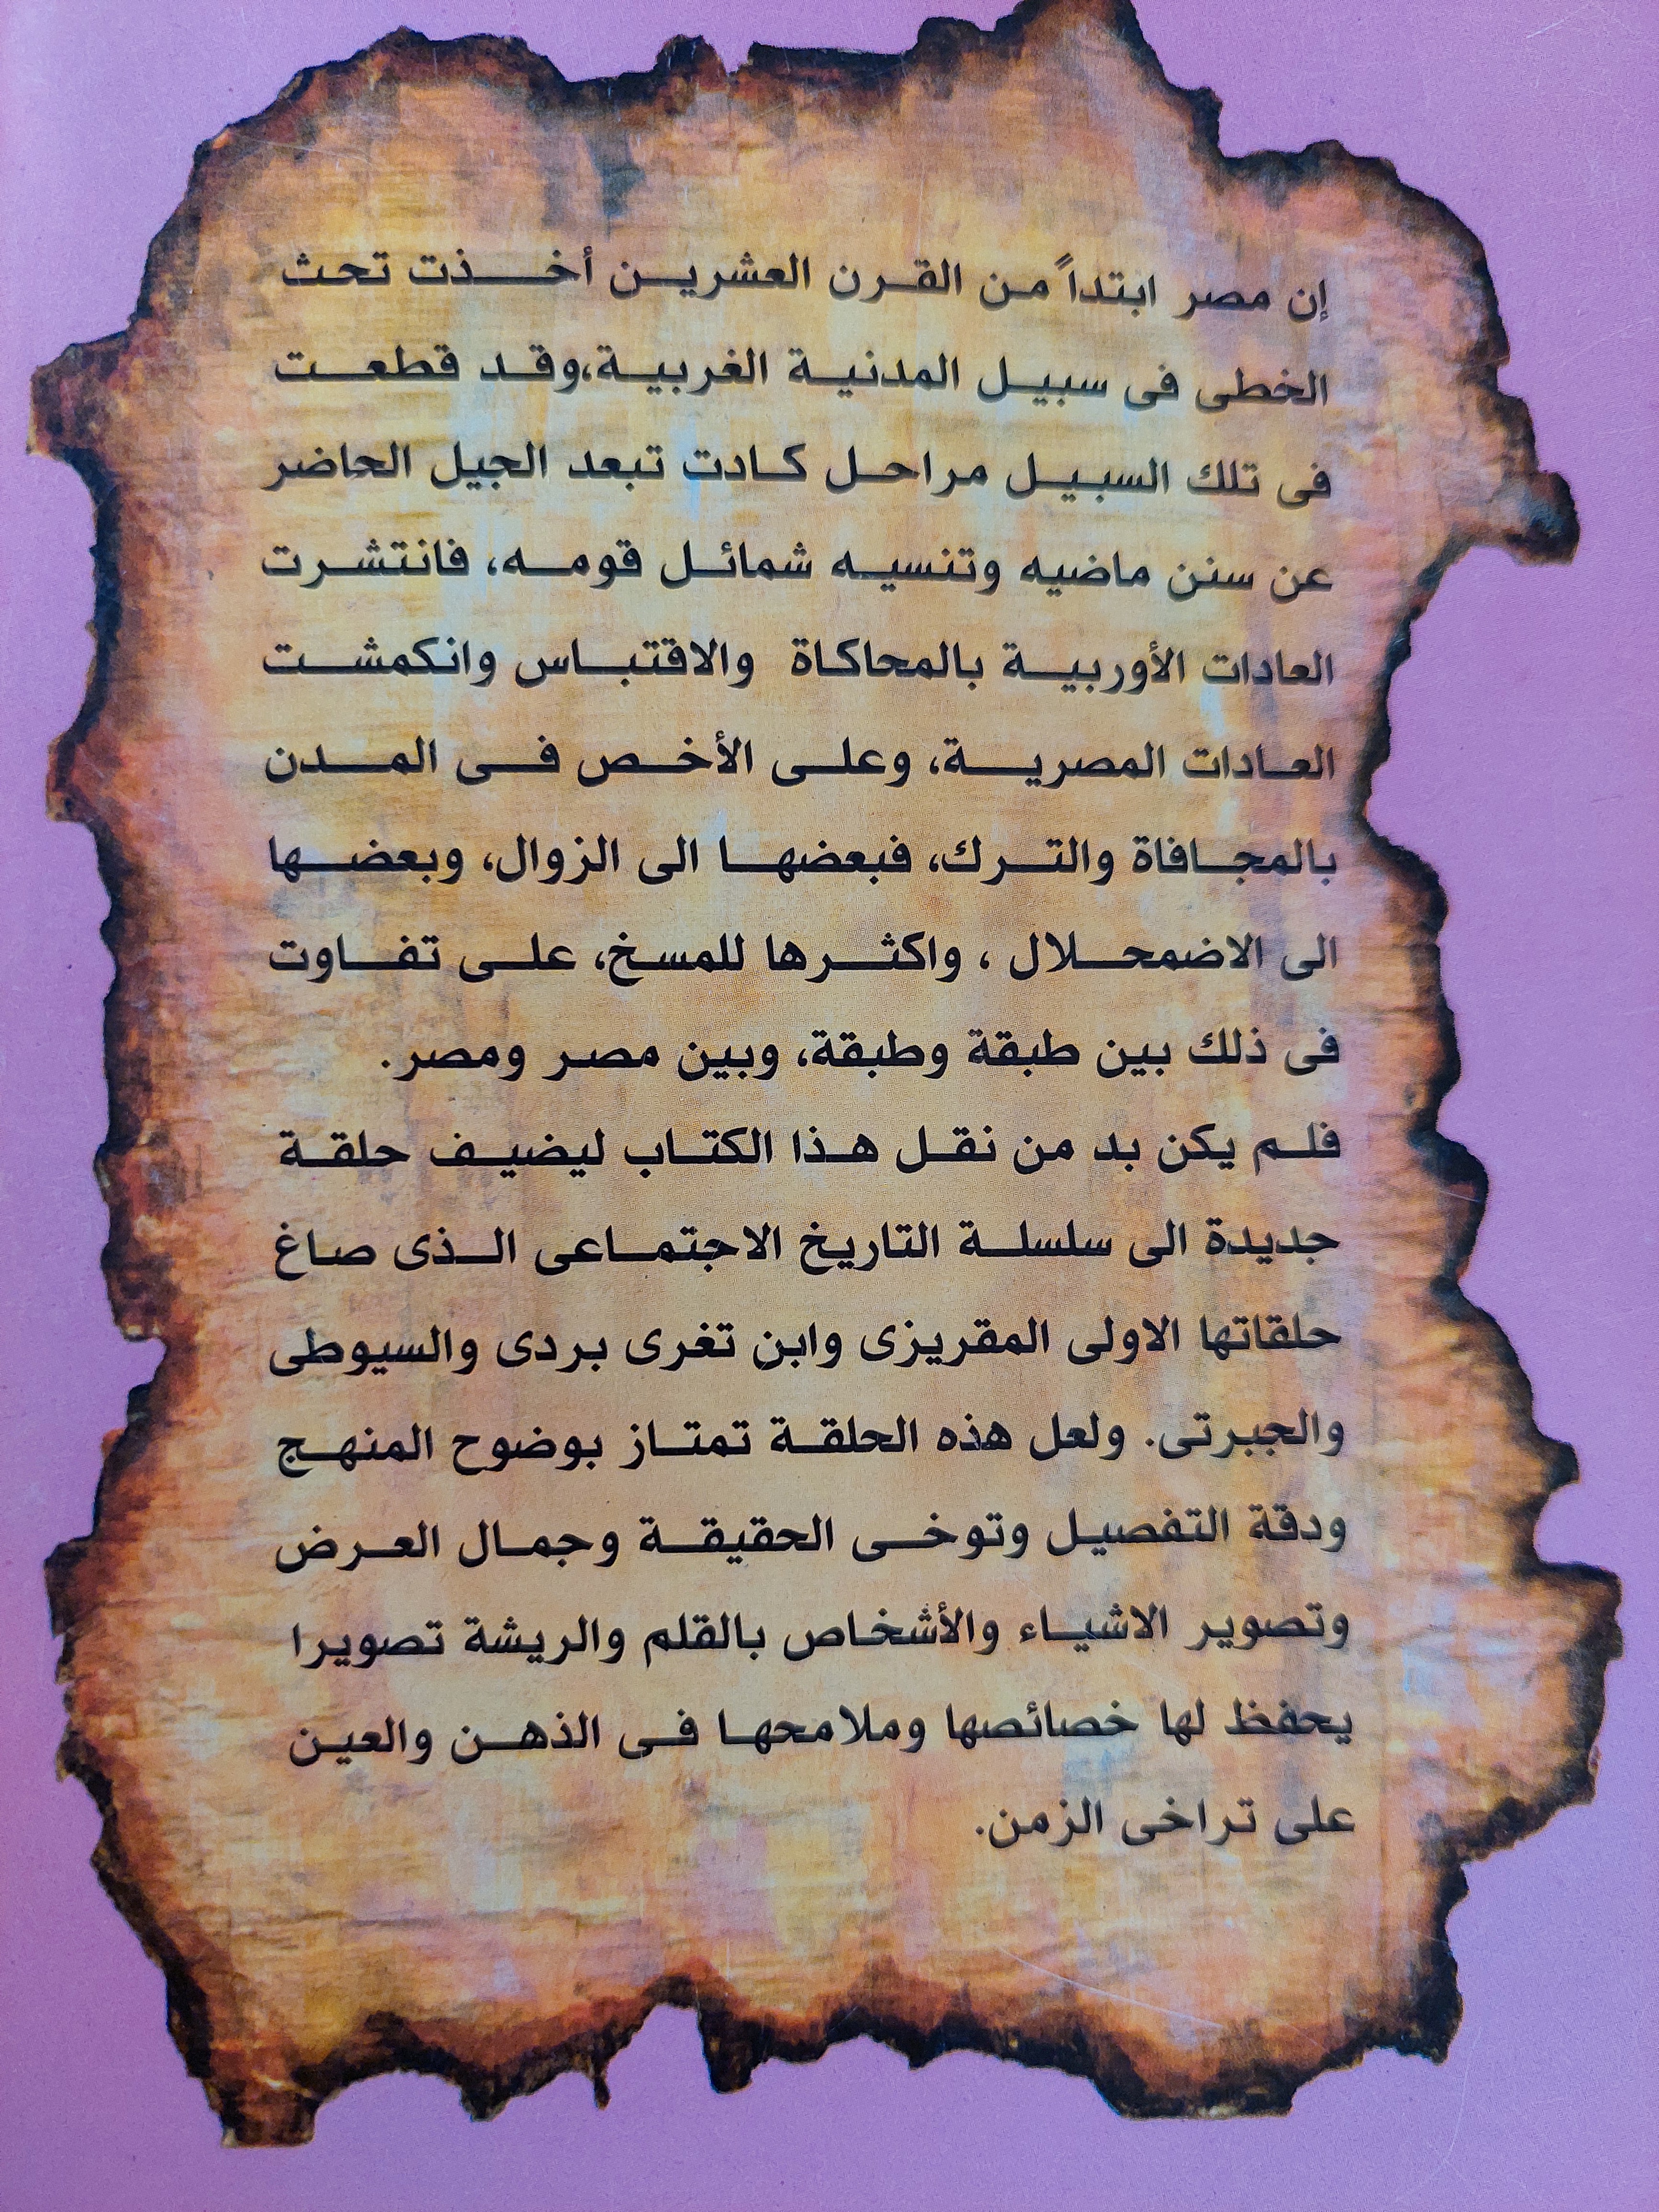 إن مصر ابتداً من القرن العشرين أخذت تحث
الخطى فى سبيل المدنية الغربية،وقد قطعت
فى تلك السبيل مراحل كادت تبعد الجيل الحاضر
عن سنن ماضيه وتنسيه شمائل قومه، فانتشرت
العادات الأوربية بالمحاكاة والاقتباس وانكمشت
العادات المصرية، وعلى الأخص فى المدن
بالمجافاة والترك، فبعضها الى الزوال، وبعضها
الى الاضمحلال ، واكثرها للمسخ، على تفاوت
فى ذلك بين طبقة وطبقة، وبين مصر ومصر.
فلم يكن بد من نقل هذا الكتاب ليضيف حلقة
جديدة الى سلسلة التاريخ الاجتماعى الذى صاغ
حلقاتها الاولى المقريزى وابن تغرى بردى والسيوطى
والجبرتى. ولعل هذه الحلقة تمتاز بوضوح المنهج
ودقة التفصيل وتوخى الحقيقة وجمال العرض
وتصوير الاشياء والأشخاص بالقلم والريشة تصويرا
يحفظ لها خصائصها وملامحها فى الذهن والعين
على تراخى الزمن.